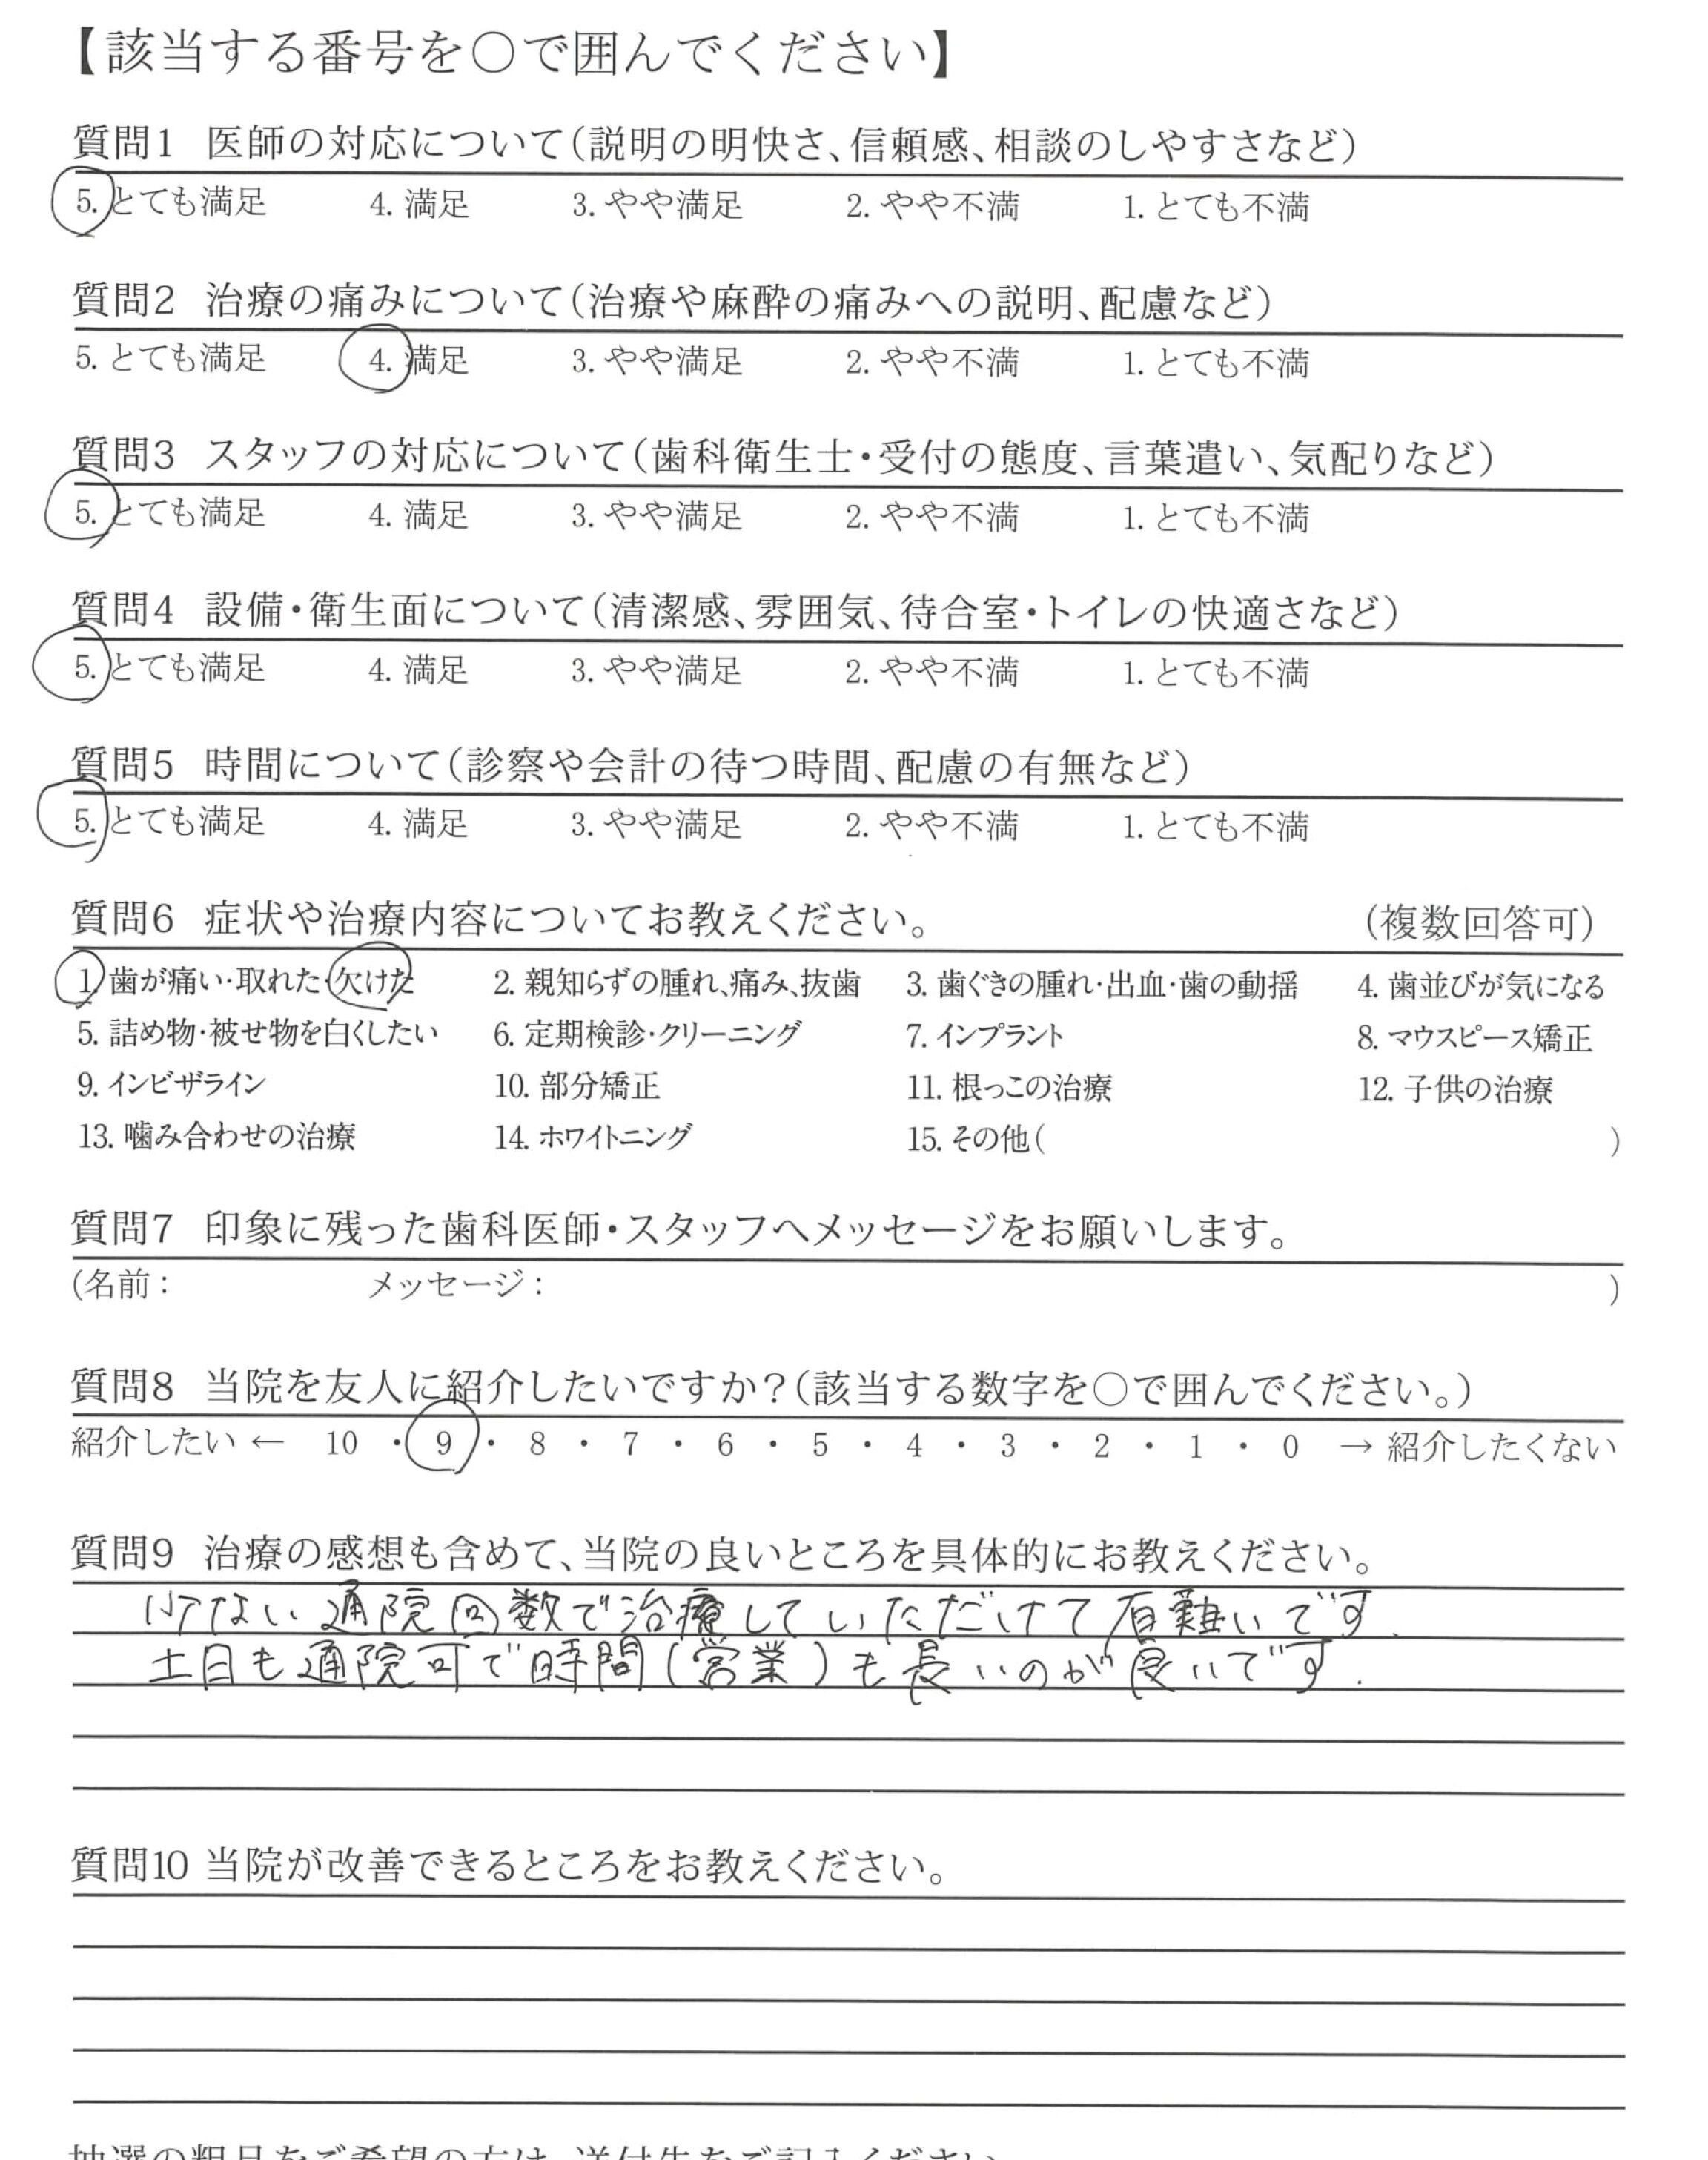 【該当する番号を○で囲んでください】
質問1 医師の対応について(説明の明快さ、信頼感、相談のしやすさなど)
5. とても満足 4. 満足 3. やや満足 2. やや不満 1. とても不満
質問2 治療の痛みについて(治療や麻酔の痛みへの説明、配慮など)
5. とても満足 4. 満足 3. やや満足 2. やや不満 1. とても不満
質問3 スタッフの対応について(歯科衛生士・受付の態度、言葉遣い、気配りなど)
5. とても満足 4. 満足 3. やや満足 2. やや不満 1. とても不満
質問4 設備・衛生面について(清潔感、雰囲気、待合室・トイレの快適さなど)
5. とても満足 4. 満足 3. やや満足 2. やや不満 1. とても不満
質問5 時間について(診察や会計の待つ時間、配慮の有無など)
5. とても満足 4. 満足 3. やや満足 2. やや不満 1. とても不満
質問6 症状や治療内容についてお教えください。 (複数回答可)
1. 歯が痛い・取れた・欠けた 2. 親知らずの腫れ、痛み、抜歯 3. 歯ぐきの腫れ・出血・歯の動揺 4. 歯並びが気になる
5. 詰め物・被せ物を白くしたい 6. 定期検診・クリーニング 7. インプラント 8. マウスピース矯正
9. インビザライン 10. 部分矯正 11. 根っこの治療 12. 子供の治療
13. 噛み合わせの治療 14. ホワイトニング 15. その他( )
質問7 印象に残った歯科医師・スタッフへメッセージをお願いします。
(名前： メッセージ： )
質問8 当院を友人に紹介したいですか?(該当する数字を○で囲んでください。)
紹介したい ← 10 ・ 9 ・ 8 ・ 7 ・ 6 ・ 5 ・ 4 ・ 3 ・ 2 ・ 1 ・ 0 → 紹介したくない
質問9 治療の感想も含めて、当院の良いところを具体的にお教えください。
少ない通院回数で治療していただけて有難いです.
土日も通院可で時間(営業)も長いのが良いです.
質問10 当院が改善できるところをお教えください。
抽選の粗品をご希望の方は、送付先をご記入ください